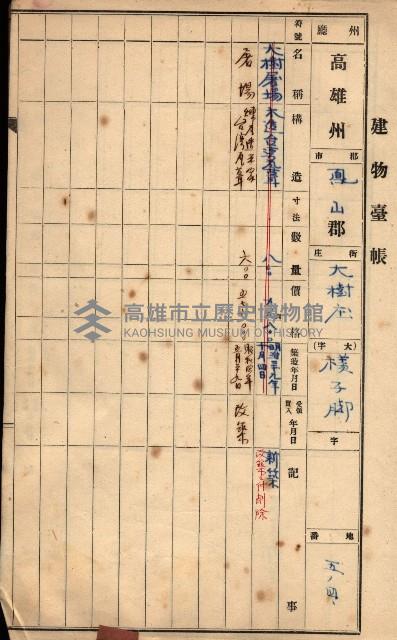 建物臺帳
州廳 高雄州 郡市 鳳山郡 街庄 大樹庄 大字 檨子脚 字 地番 五ノ四
符號 名稱 構造 寸法 數量 價格 築造年月日 受領買入年月日 記事
大樹屠場 木造台湾瓦葺 八〇 八〇〇 明治三九年十月四日 新築
改築ニ付削除
屠場 煉瓦造平家台湾瓦葺 六〇〇 昭和四年五月二十九日 改築
高雄市立歷史博物館
KAOHSIUNG MUSEUM OF HISTORY